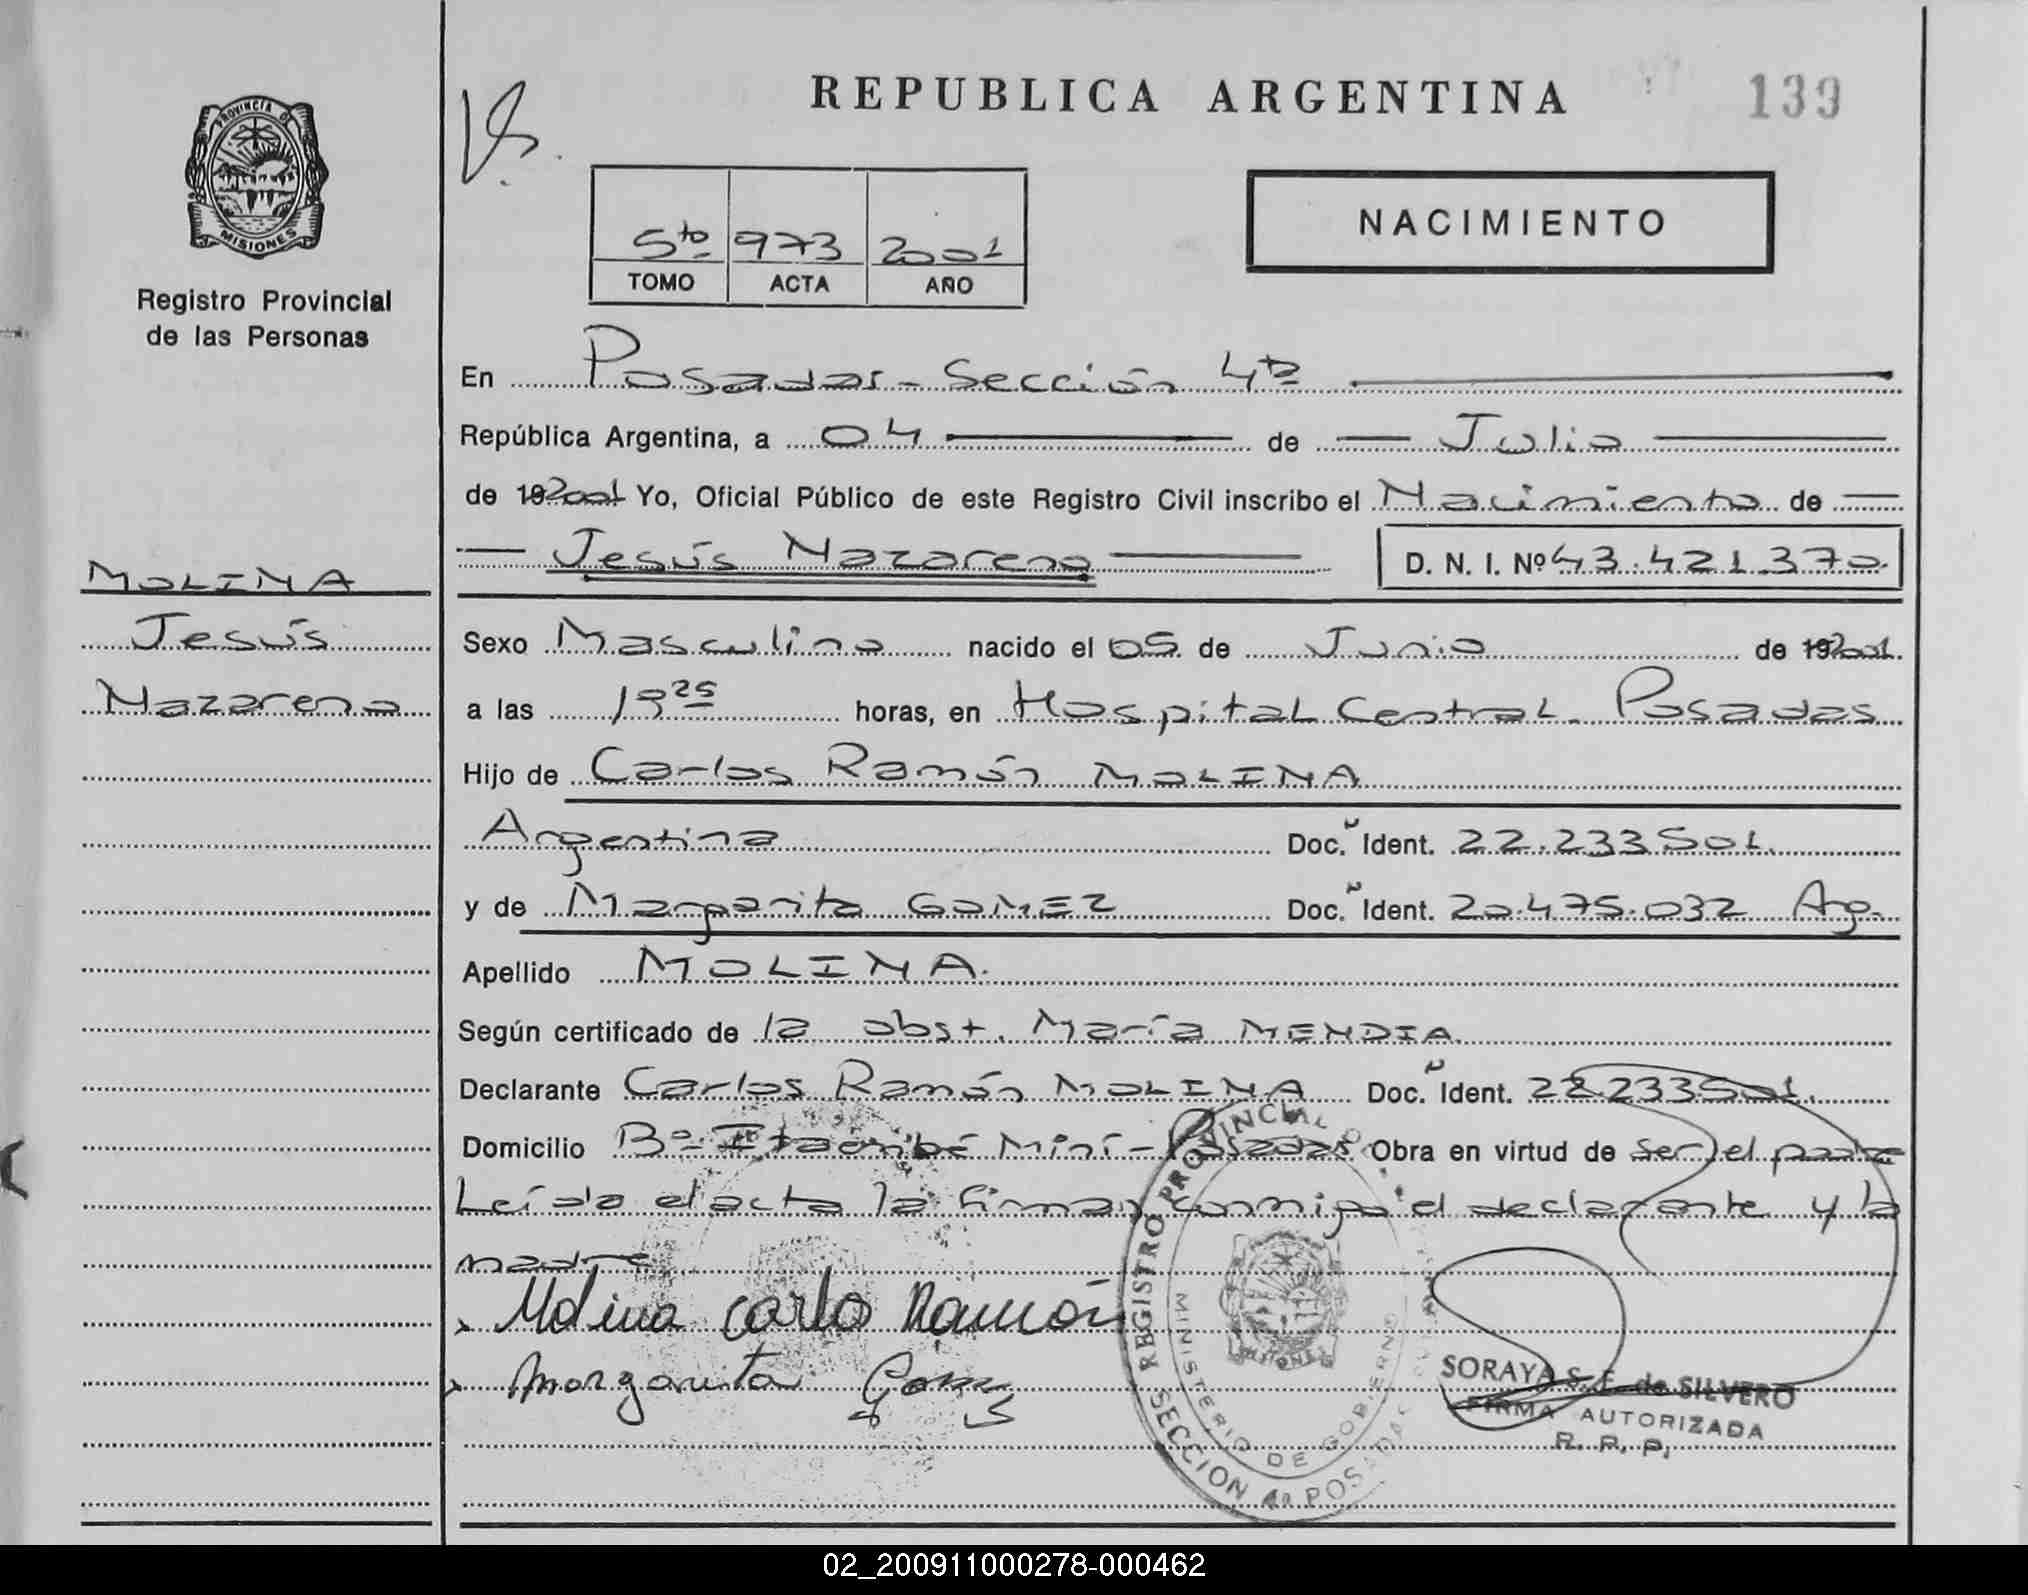 REPUBLICA ARGENTINA
139
PROVINCIA DE
MISIONES
Registro Provincial
de las Personas
5to 973 2001
TOMO ACTA AÑO
NACIMIENTO
En Posadas - Sección 4ta
República Argentina, a 04 de Julio
de 192001 Yo, Oficial Público de este Registro Civil inscribo el Nacimiento de
Jesús Nazareno D. N. I. Nº 43.421.370.
MOLINA
Jesús
Nazareno
Sexo Masculino nacido el 05 de Junio de 192001.
a las 19 25 horas, en Hospital Central. Posadas
Hijo de Carlos Ramón MOLINA
Argentina Doc. Ident. 22.233.501.
y de Margarita GOMEZ Doc. Ident. 20.475.032 Arg.
Apellido MOLINA.
Según certificado de la obst. María MENDIA.
Declarante Carlos Ramón MOLINA Doc. Ident. 22.233.501.
Domicilio Bº Itaembé Miní - Posadas Obra en virtud de ser el padre
Leída el acta la firman conmigo el declarante y la
madre
Molina Carlo Ramón
Margarita Gomes
REGISTRO PROVINCIAL
MINISTERIO DE GOBIERNO
SECCION 4ª POSADAS
SORAYA S. F. de SILVERO
FIRMA AUTORIZADA
R. P. P.
02_200911000278-000462